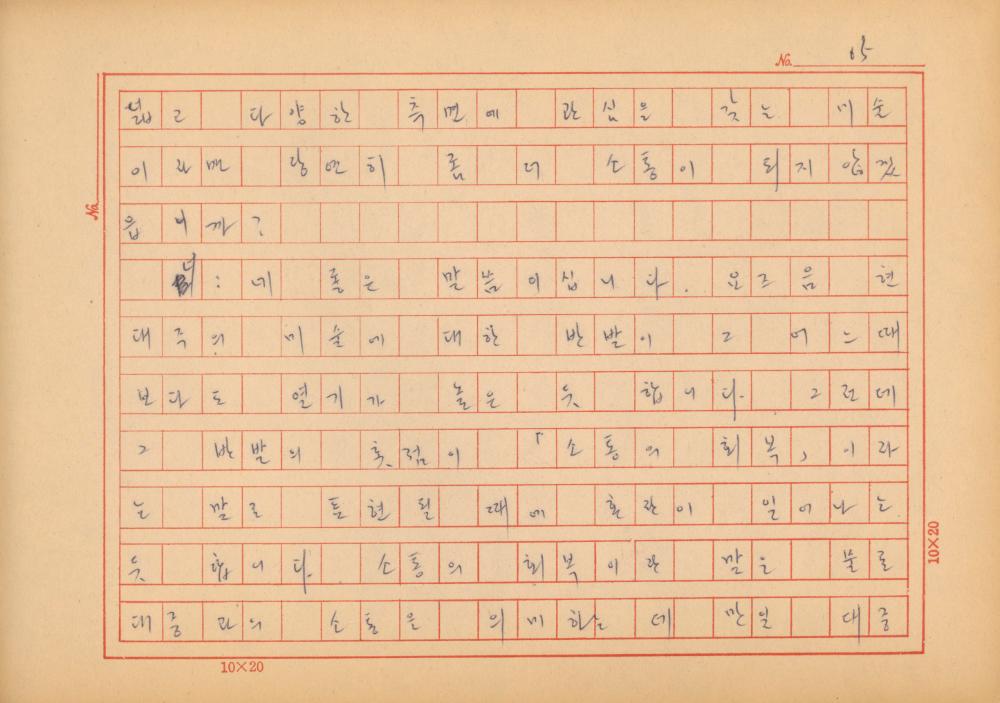 No. 15
넓고 다양한 측면에 관심을 갖는 미술
이라면 당연히 좀 더 소통이 되지 않겠
읍니까?
: 네 좋은 말씀이십니다. 요즈음 현
대주의 미술에 대한 반발이 그 어느때
보다도 열기가 높은 듯 합니다. 그런데
그 반발의 촛점이 「소통의 회복」이라
는 말로 표현될 때에 혼란이 일어나는
듯 합니다. 소통의 회복이란 말은 물론
대중과의 소통을 의미하는데 만일 대중
No.
10×20
10×20